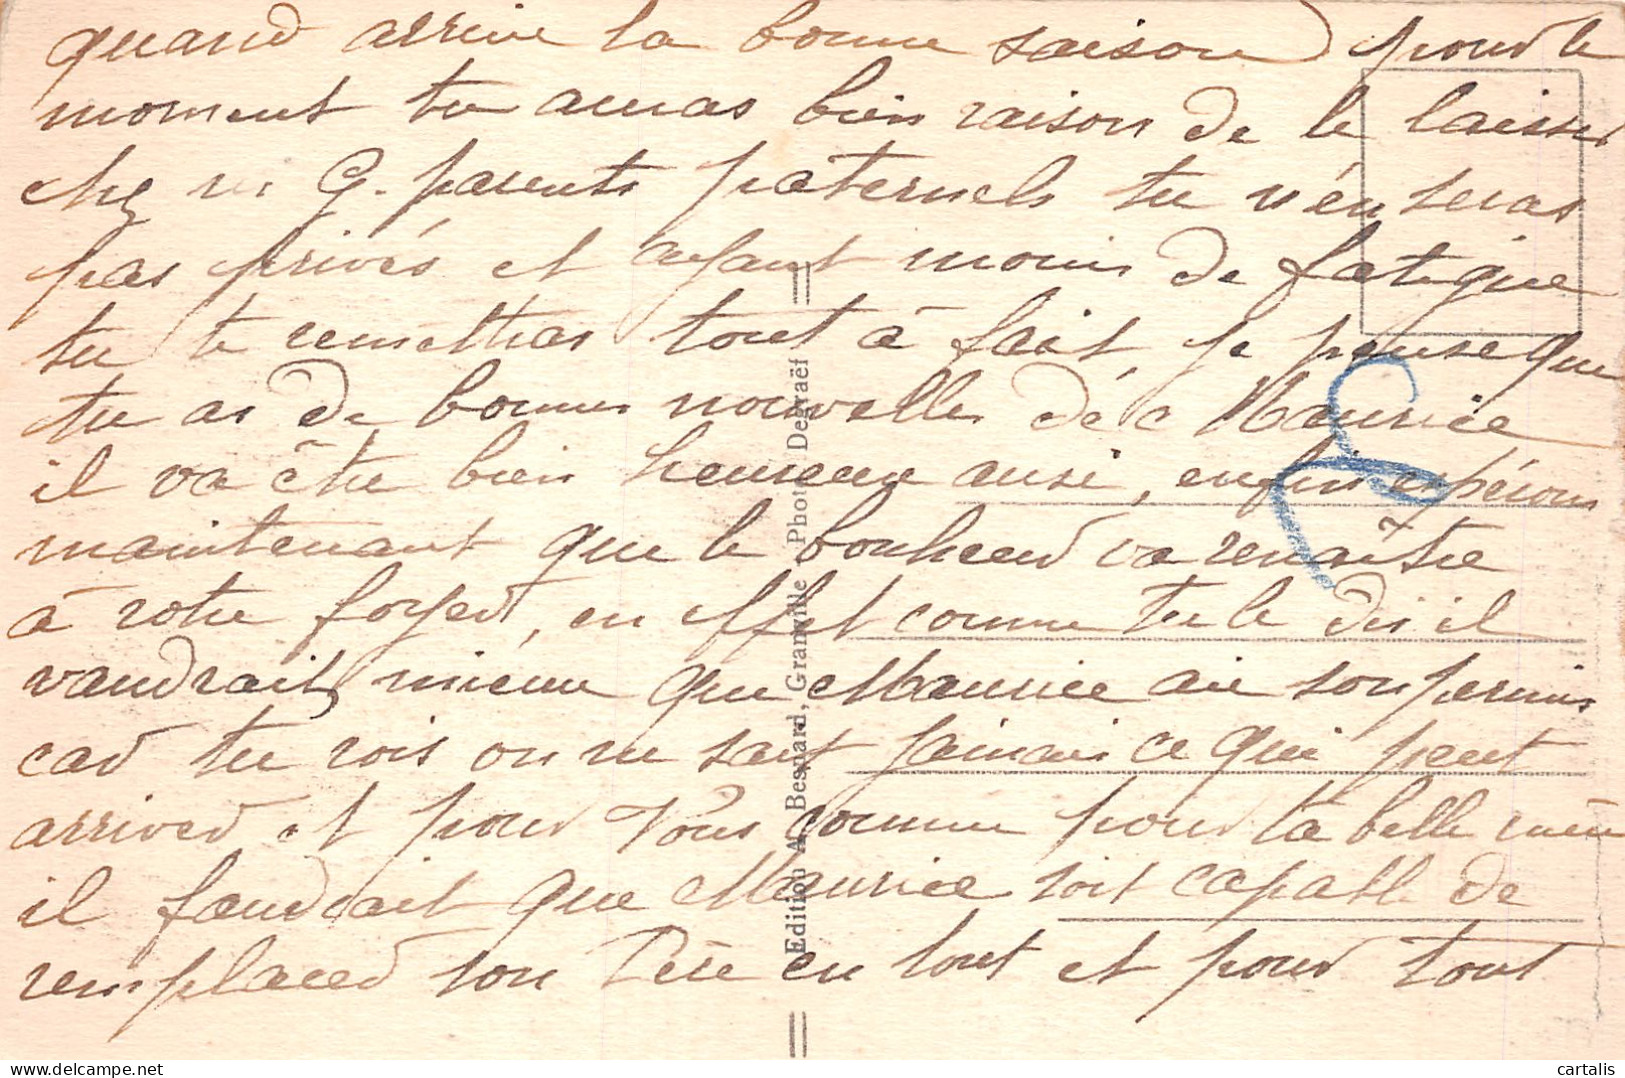 quand arrive la bonne saison pour le
moment tu auras bien raison de le laisser
chez ses G. parents paternels tu n'en seras
pas privés et ayant moins de fatigue
tu te remettras tout à fait je pense que
tu as de bonnes nouvelles de Maurice
il va être bien heureux aussi, enfin espérons
maintenant que le bonheur va renaître
à votre foyer, en effet comme tu le dis il
vaudrait mieux que Maurice aie son permis
car tu vois on ne sait jamais ce qui peut
arriver et pour vous comme pour ta belle mère
il faudrait que Maurice soit capable de
remplacer son Père en tout et pour tout
Edition A. Besnard, Granville - Photo Degraëf
cartalis